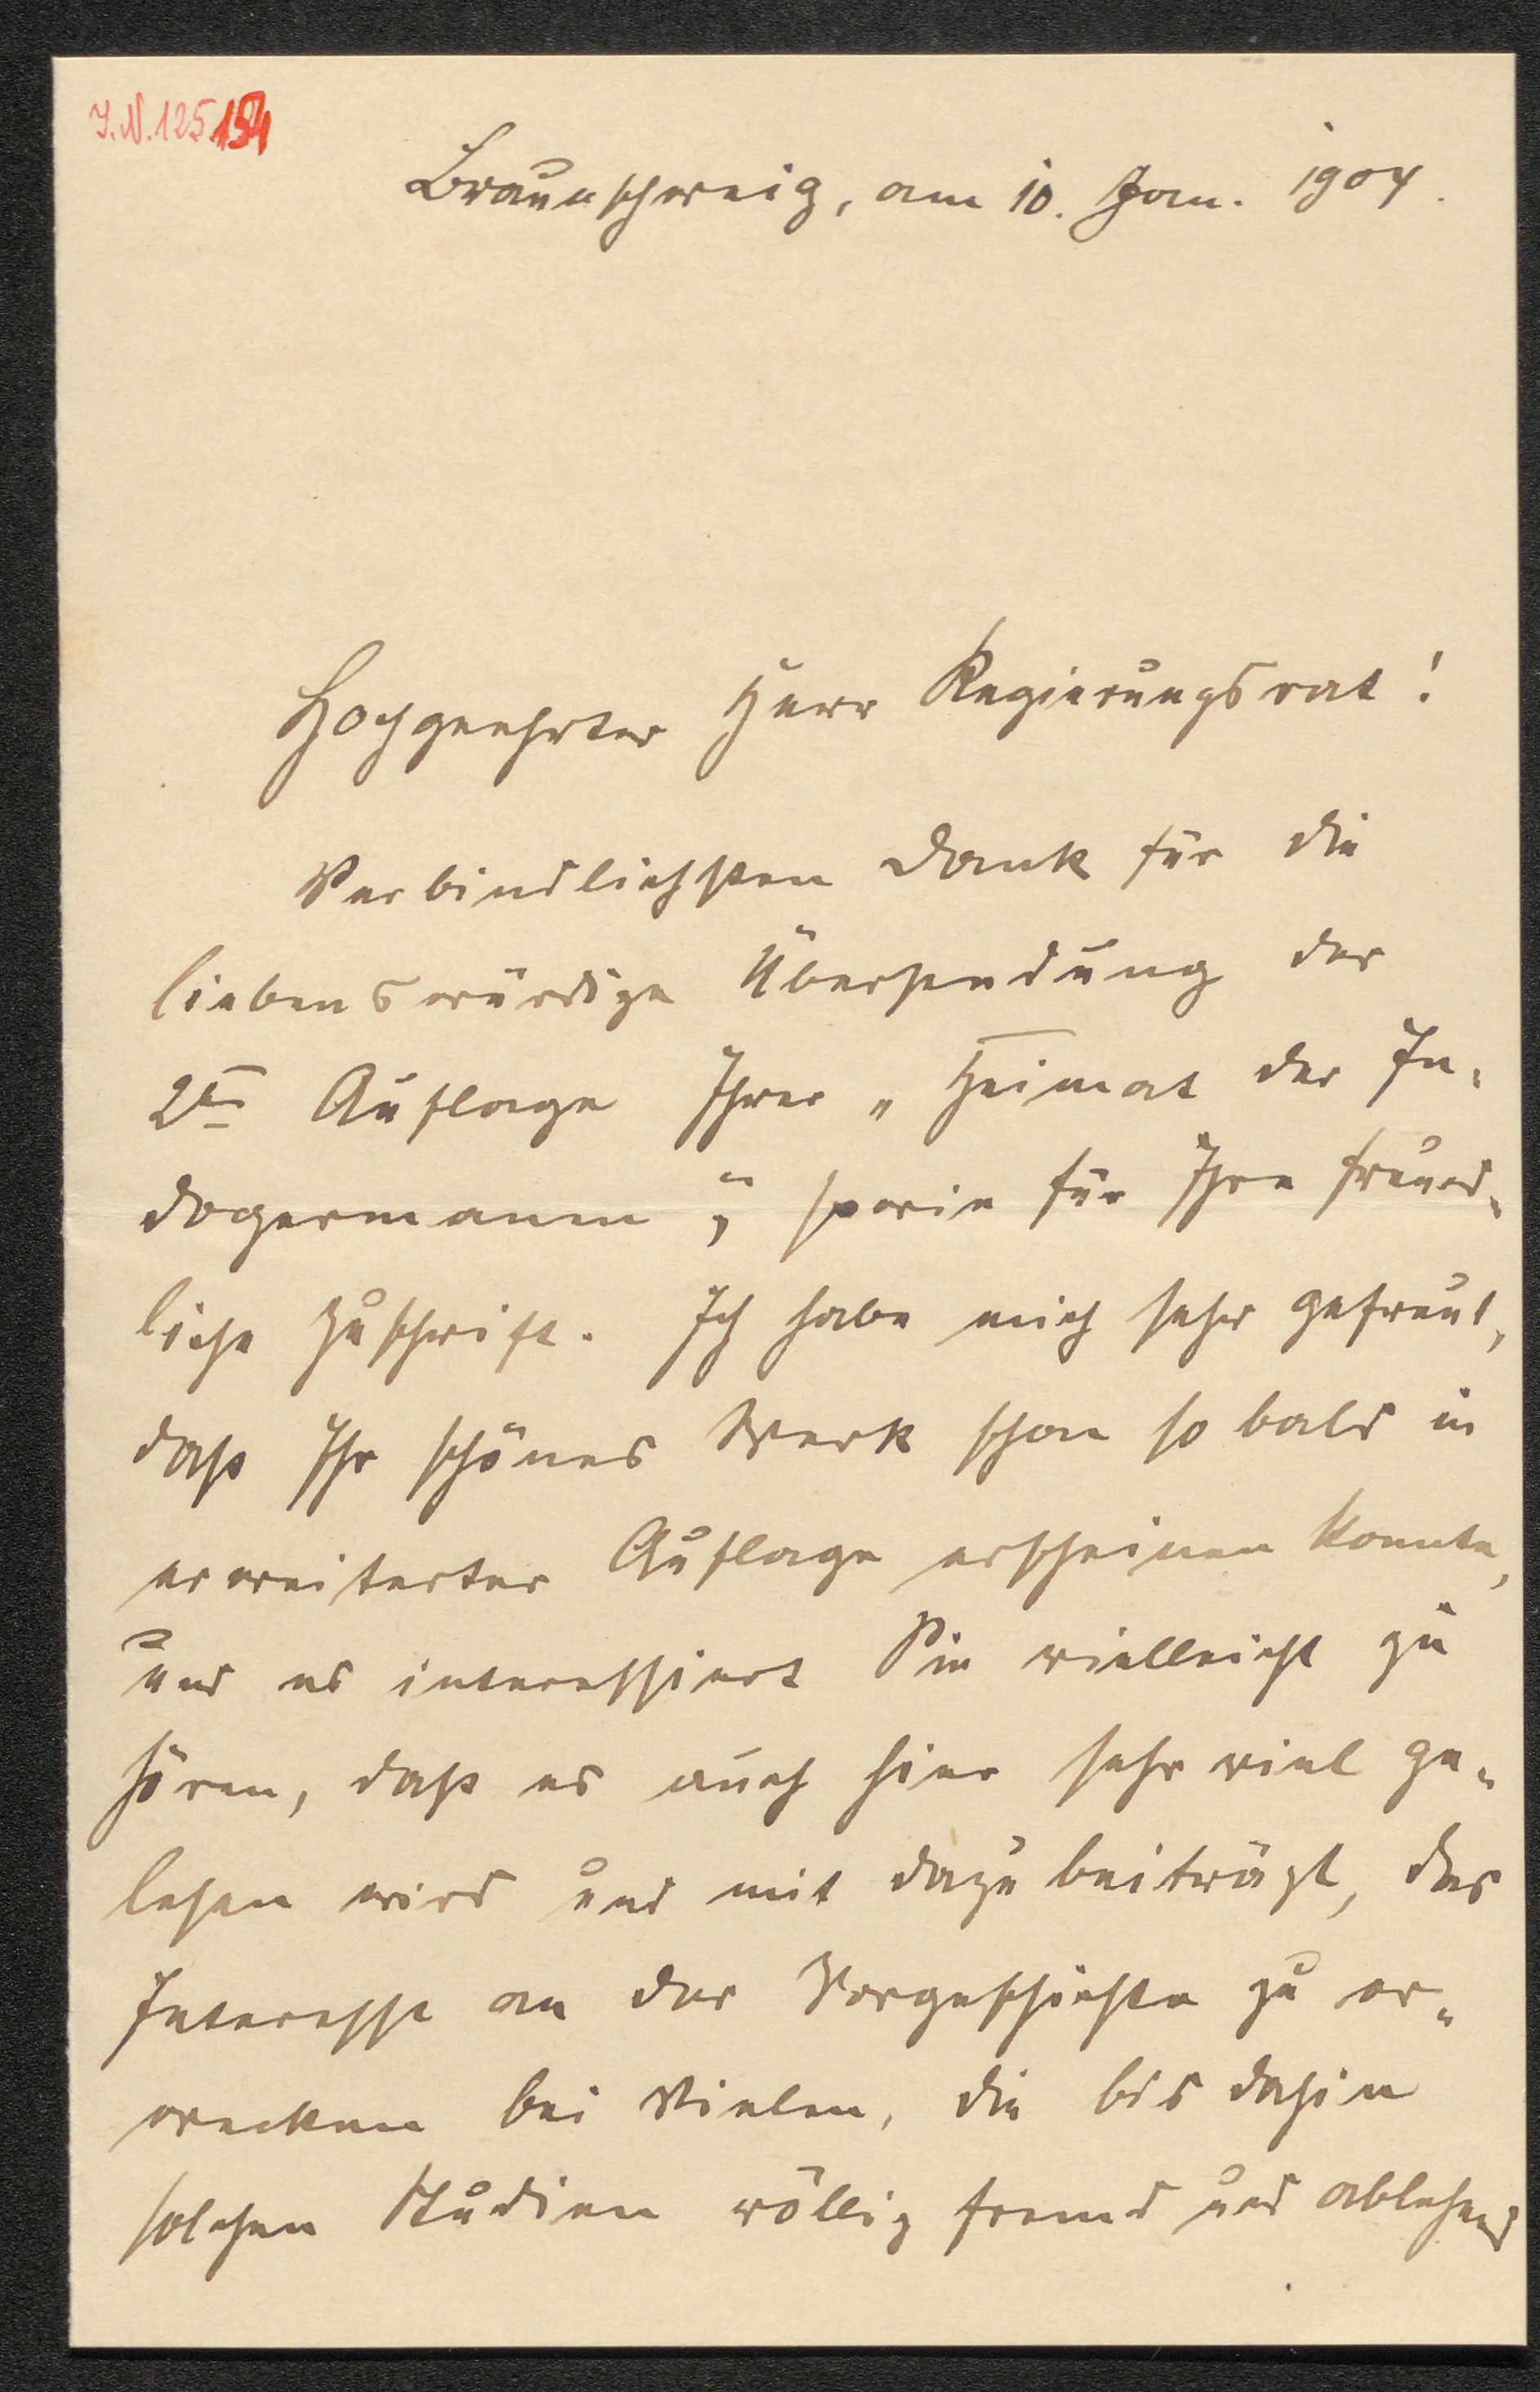 J.N. 125.154
Braunschweig, am 10. Jan. 1904.
Hochgeehrter Herr Regierungsrat!
Verbindlichsten Dank für die
liebenswürdige Übersendung der
2ten Auflage Ihrer „Heimat der In-
dogermanen“, sowie für Ihre freund-
liche Zuschrift. Ich habe mich sehr gefreut,
daß Ihr schönes Werk schon so bald in
erweiterter Auflage erscheinen konnte,
und es interessiert Sie vielleicht zu
hören, daß es auch hier sehr viel ge-
lesen wird und mit dazu beiträgt, das
Interesse an der Vorgeschichte zu er-
wecken bei Vielen, die bis dahin
solchen Studien völlig fremd und ablehnend